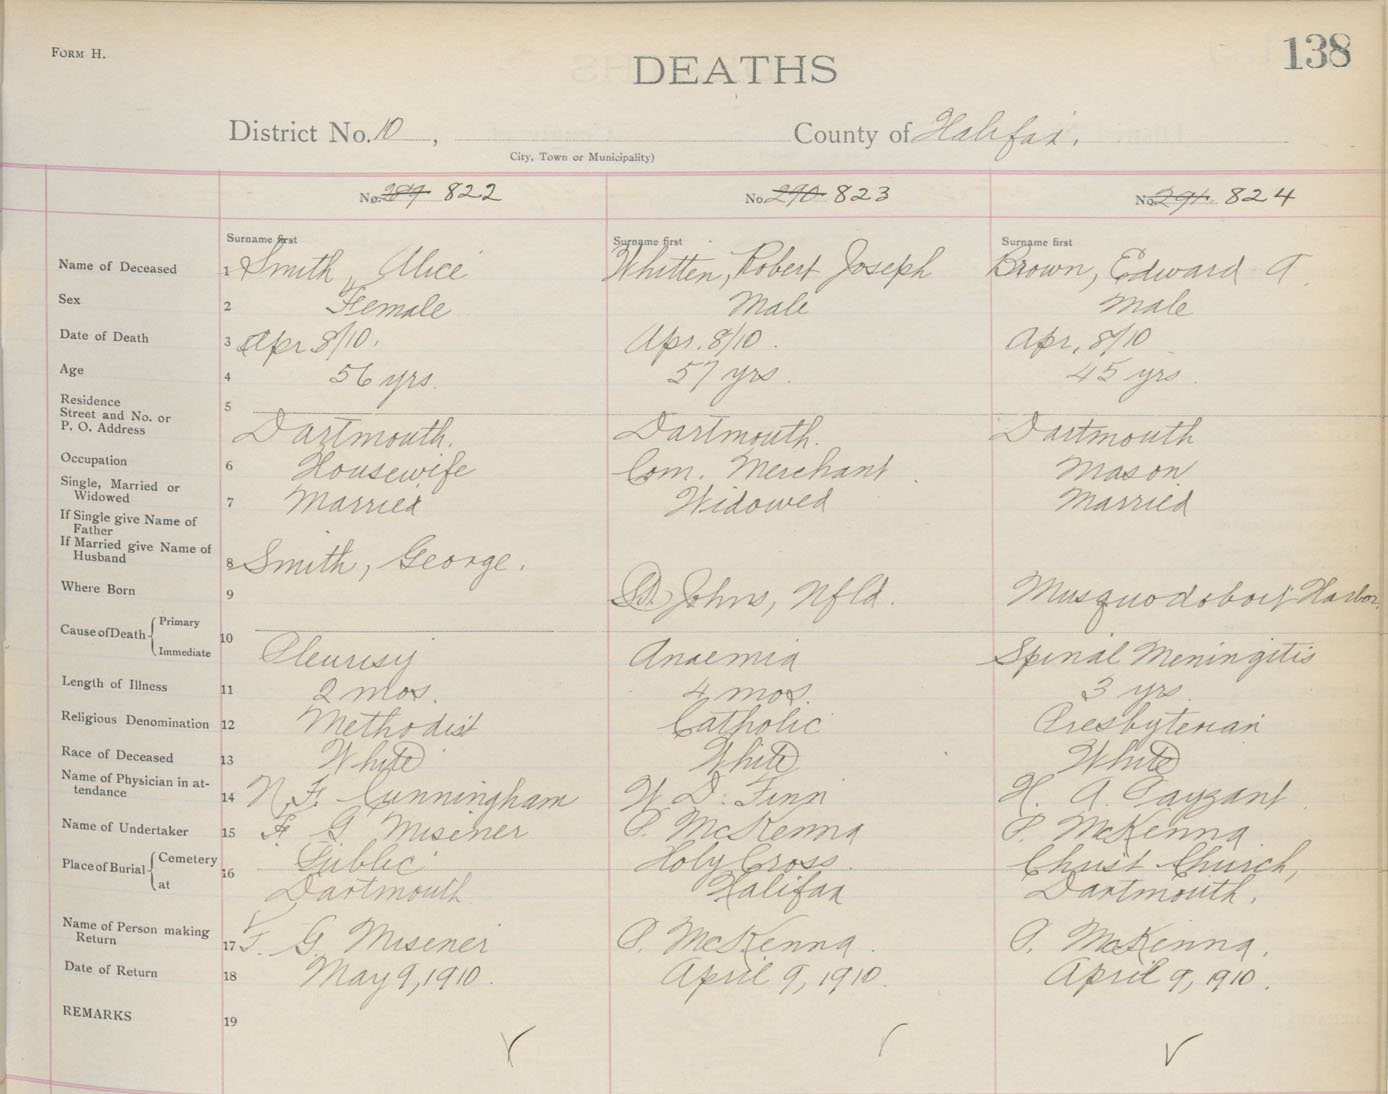 FORM H.
138
DEATHS
District No. 10 , County of Halifax.
City, Town or Municipality)
No. 289 822 No. 290 823 No. 291 824
Surname first Surname first Surname first
Name of Deceased 1 Smith, Alice Whitten, Robert Joseph Brown, Edward A.
Sex 2 Female Male Male
Date of Death 3 Apr 8/10. Apr. 8/10. Apr, 8/10
Age 4 56 yrs. 57 yrs. 45 yrs.
Residence
Street and No. or 5
P. O. Address Dartmouth. Dartmouth. Dartmouth
Occupation 6 Housewife Com. Merchant. Mason
Single, Married or
Widowed 7 Married Widowed Married
If Single give Name of
Father
If Married give Name of
Husband 8 Smith, George.
Where Born 9 St. Johns, Nfld. Musquodoboit Harbor.
Cause of Death { Primary
Immediate 10 Pleurisy Anaemia Spinal Meningitis
Length of Illness 11 2 mos. 4 mos. 3 yrs.
Religious Denomination 12 Methodist Catholic Presbyterian
Race of Deceased 13 White White White
Name of Physician in at-
tendance 14 N. F. Cunningham W. D. Finn H. A. Payzant
Name of Undertaker 15 F. G Misener P. McKenna P. McKenna
Place of Burial { Cemetery 16 Public Holy Cross. Christ Church,
at Dartmouth Halifax Dartmouth.
Name of Person making
Return 17 F. G. Misener P. McKenna. P. McKenna.
Date of Return 18 May 9, 1910. April 9, 1910. April 9, 1910.
REMARKS 19